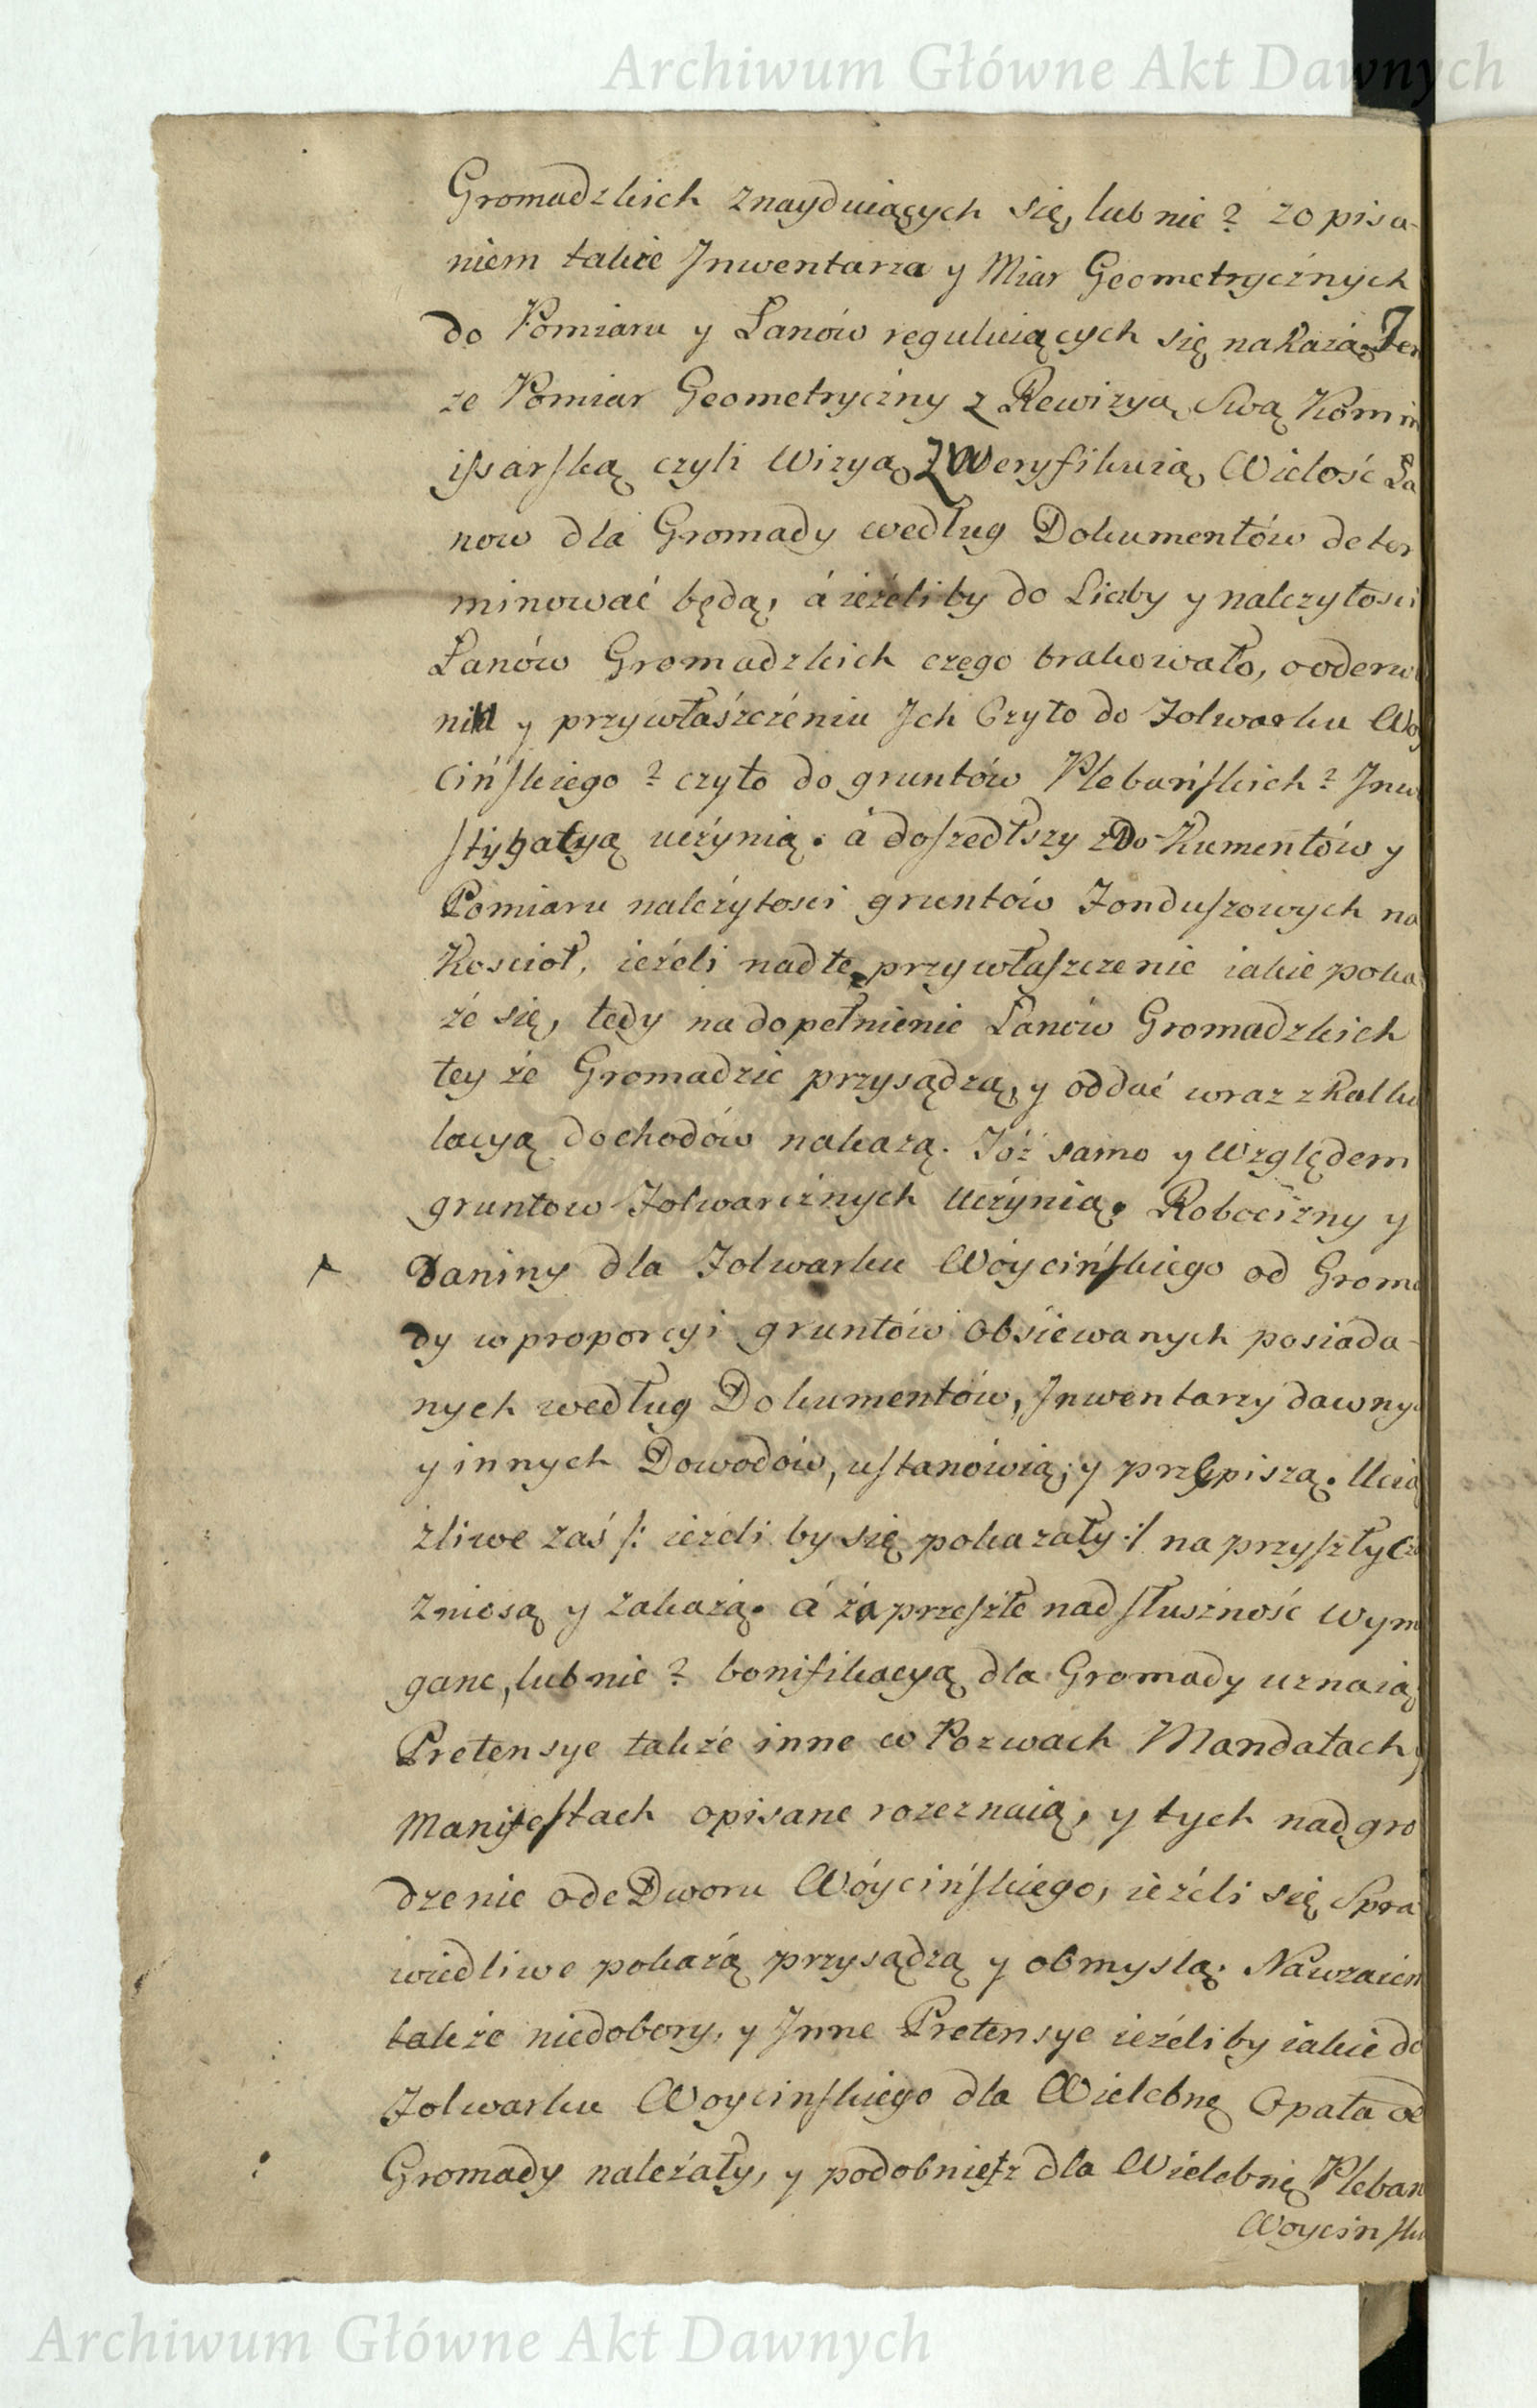 Archiwum Główne Akt Dawnych
Gromadzkich znayduiących się, lub nie? zopisa-
niem także Jnwentarza y Miar Geometrycznych
do Pomiaru y Łanów reguluiących się nakażą. Ten
że Pomiar Geometryczny z Rewizyą Swą Komm
issarską czyli Wizyą zweryfikuią, Wielość Ła
now dla Gromady według Dokumentów deter
minować będą, á ieżeliby do Liczby y należytosci
Łanów Gromadzkich czego brakowało, o oderwa
niu y przywłaśzczeniu Jch Czyto do Folwarku Woy
cińskiego? czyto do gruntów Plebańskich? Jnwe
stygacyą uczynią. á doszedłszy z Do-kumentów y
Pomiaru należytosci gruntów Fonduszowych na
Koscioł, ieżeli nad te przywłaszczenie iakie poka
że się, tedy na dopełnienie Łanów Gromadzkich
tey że Gromadzie przysądzą, y oddać wraz z Kalku
lacyą dochodów nakażą. Tóż samo y Względem
gruntow Folwarcznych Uczynią. Robocizny y
Daniny dla Folwarku Wóycińskiego od Groma
dy w proporcyi gruntów Obsiewanych posiada-
nych według Dokumentów, Jnwentarzy dawnych
y innych Dowodów, ustanowią, y przepiszą. Ucią
żliwe zaś /: ieżeli by się pokazały :/ na przyszły Cza
zniosą y zakażą. á za przeszłe nad słuszność wyma
gane, lub nie? bonifikacyą dla Gromady uznaią
Pretensye także inne w Pozwach Mandatach,
Manifestach opisane rozeznaią, y tych nadgro
dzenie ode Dworu Wóycińskiego, ieżeli się Spra
wiedliwe pokażą przysądzą y obmyslą. Nawzaiem
także niedobory, y Jnne Pretensye ieżeli by iakie do
Folwarku Woycinskiego dla Wielebnę Opata od
Gromady należały, y podobnież dla Wielebnę Pleban
Woycinski
Archiwum Główne Akt Dawnych